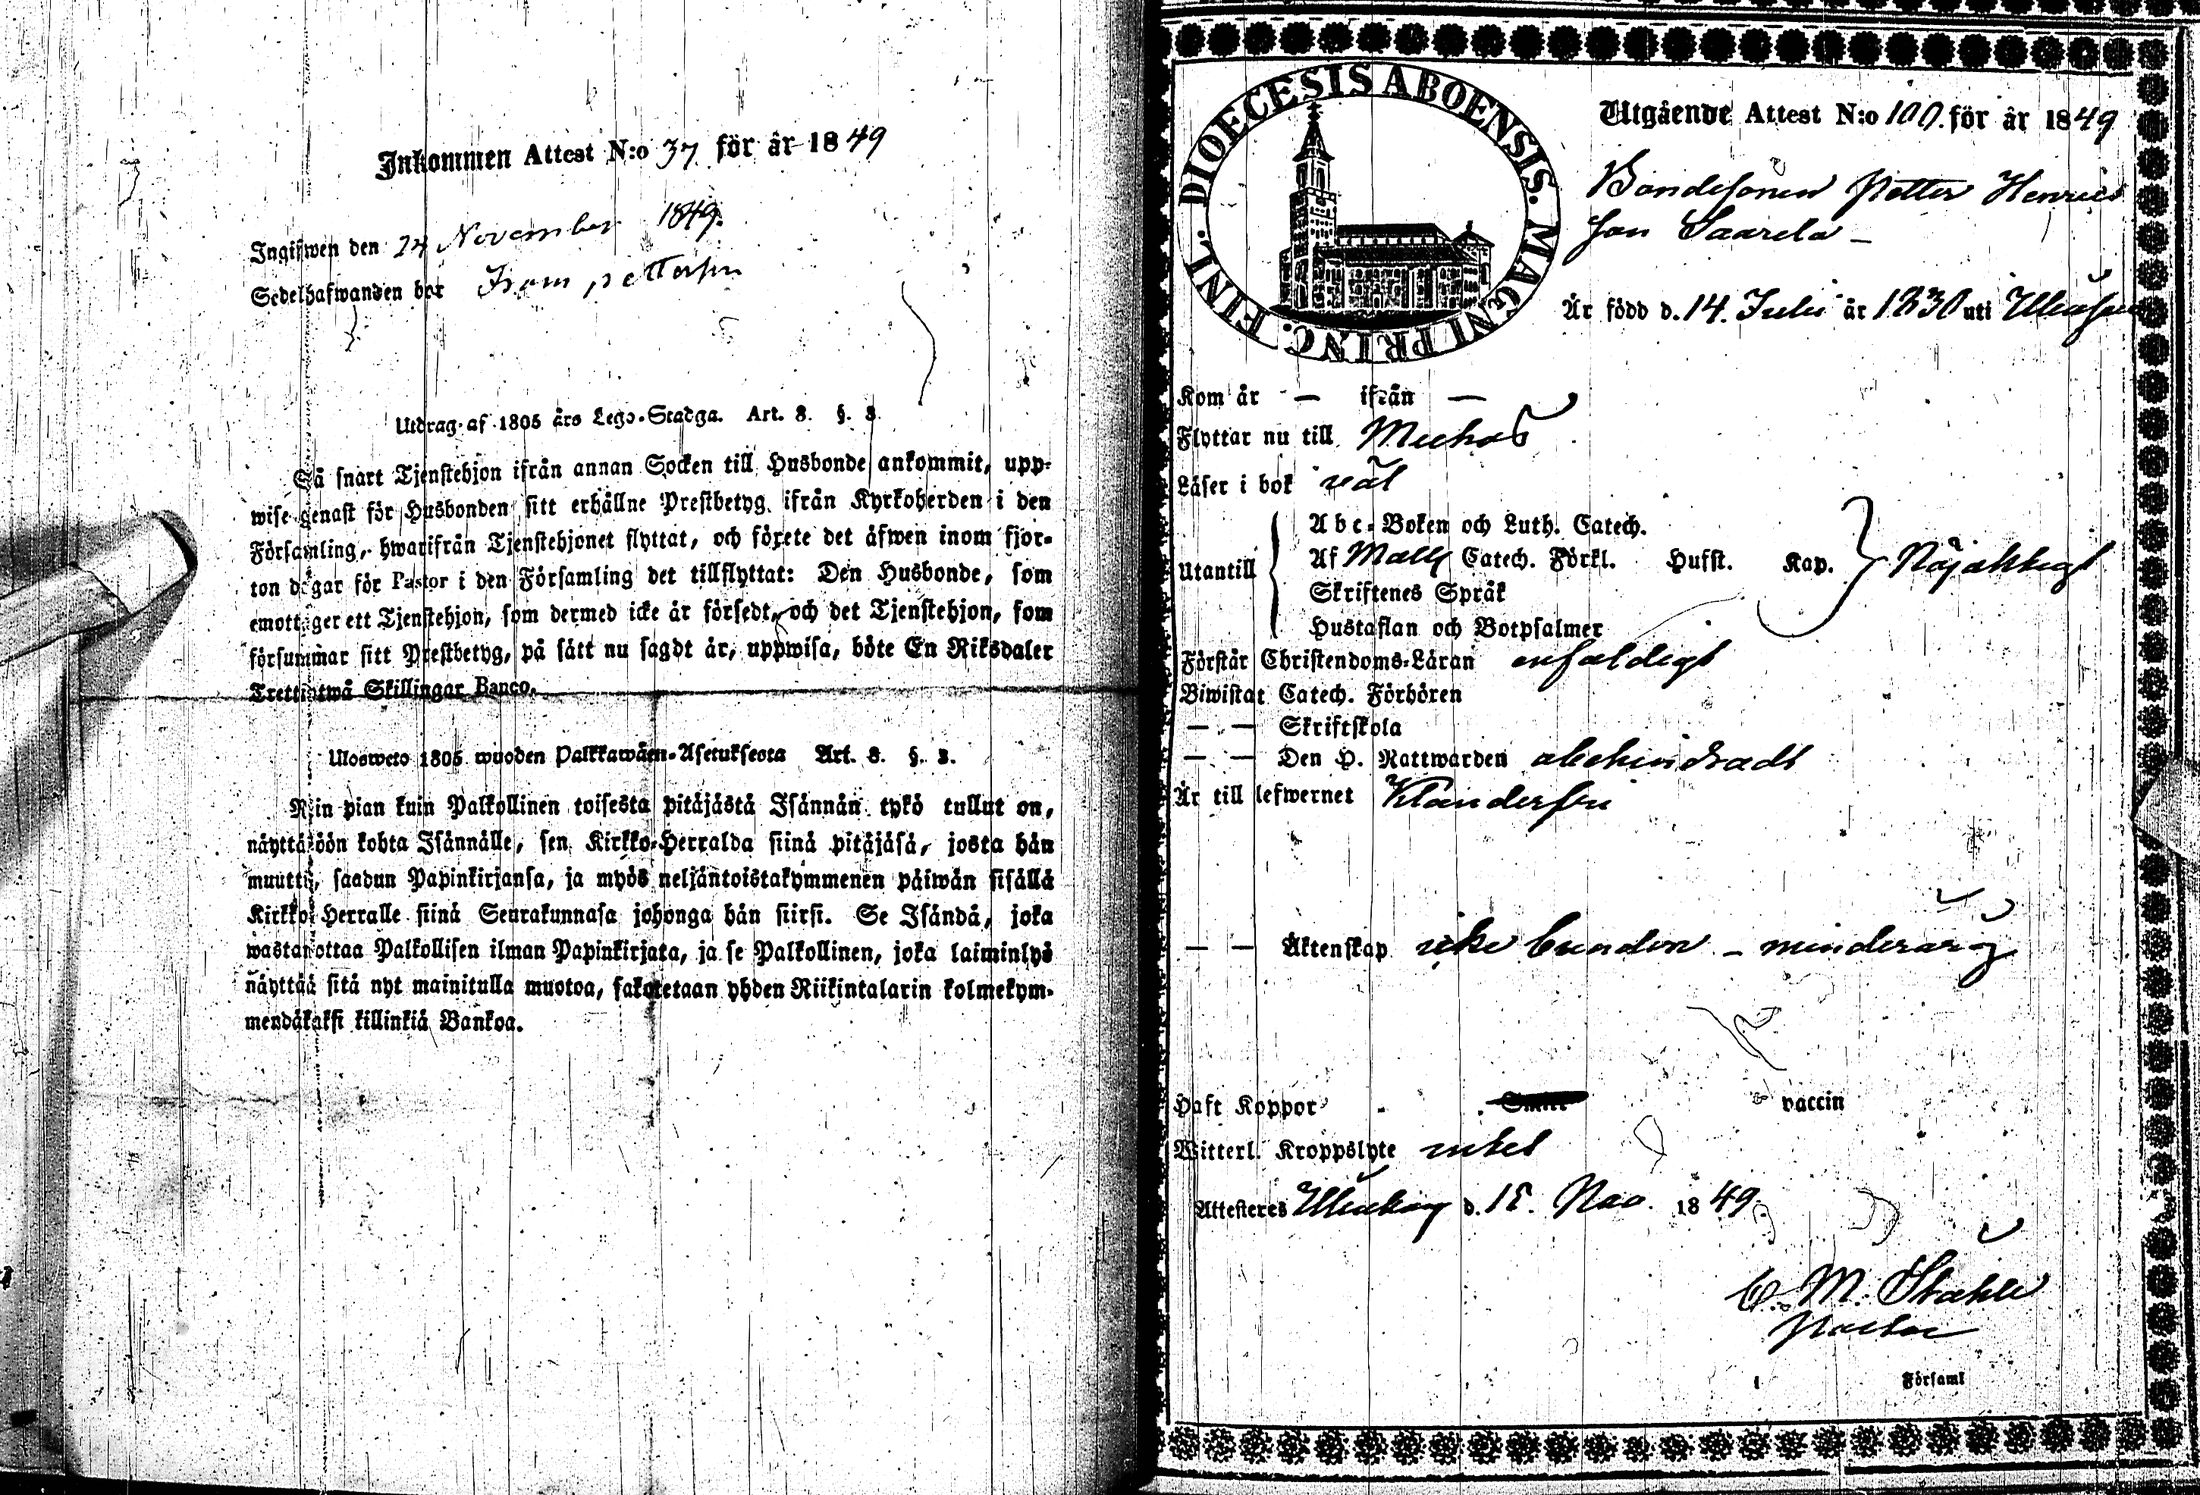 Inkommen Attest N:o 37 för år 1849
Ingifwen den 24 November 1849.
Sedelhafwanden bor
Utdrag af 1805 års Lego-Stadga. Art. 8. §. 3.
Så snart Tjenstehjon ifrån annan Socken till Husbonde ankommit, upp-
wise genast för Husbonden sitt erhållne Prestbetyg ifrån Kyrkoherden i den
Församling, hwarifrån Tjenstehjonet flyttat, och förete det äfwen inom fjor-
ton dagar för Pastor i den Församling det tillflyttat: Den Husbonde, som
emottager ett Tjenstehjon, som dermed icke är försedt, och det Tjenstehjon, som
försummar sitt Prestbetyg, på sätt nu sagdt är, uppwisa, böte En Riksdaler
Trettiotwå Skillingar Banco.
Ulosweto 1805 wuoden Palkkawäen-Asetuksesta Art. 8. §. 3.
Niin pian kuin Palkollinen toisesta pitäjästä Isännän tykö tullut on,
näyttäköön kohta Isännälle, sen Kirkko-Herralda siinä pitäjäsä, josta hän
muutti, saadun Papinkirjansa, ja myös neljäntoistakymmenen päiwän sisällä
Kirkko-Herralle siinä Seurakunnasa johonga hän siirsi. Se Isändä, joka
wastanottaa Palkollisen ilman Papinkirjata, ja se Palkollinen, joka laiminlyö
näyttää sitä nyt mainitulla muotoa, sakotetaan yhden Riikintalarin kolmekym-
mendäkaksi killinkiä Bankoa.
DIOECESIS ABOENSIS. MAGNI PRINC. FINL.
Utgående Attest N:o 100. för år 1849
Bondesonen Petter Henrics
son Saarela
Är född d. 14. Julii år 1830 uti
Kom år — ifrån —
Flyttar nu till
Läser i bok väl
Utantill
Abc-Boken och Luth. Catech.
Af Catech. Förkl. Hufst. Kap. Nöjaktigt
Skriftenes Språk
Hustaflan och Botpsalmer
Förstår Christendoms-Läran enfaldigt
Biwistat Catech. Förhören
— — Skriftskola
— — Den H. Nattwarden obehindradt
Är till lefwernet Klanderfri
— — Äktenskap icke bunden - minderårig
Haft Koppor vaccin
Witterl. Kroppslyte intet
Attesteres d. 15. Nov. 1849.
C. M. Ståhle
Pastor
Församl